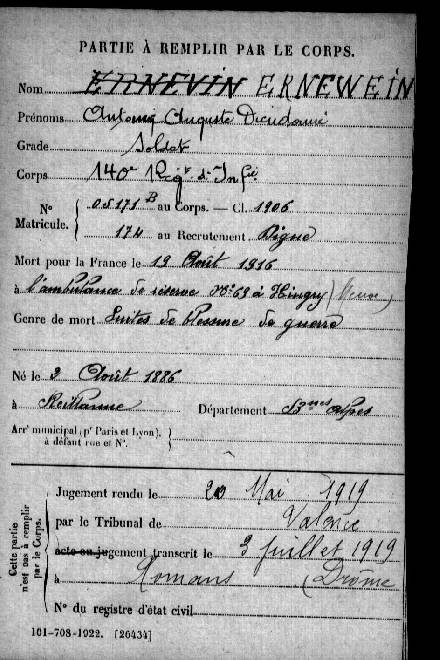 PARTIE À REMPLIR PAR LE CORPS.
Nom ERNEVIN ERNEWEIN
Prénoms Antonin Auguste Dieudonné
Grade Soldat
Corps 140e Régt d'Infie
N° Matricule. { 05171 B au Corps. — Cl. 1906
174 au Recrutement Digne
Mort pour la France le 19 Août 1916
à l'ambulance de réserve N° 69 à (Meuse)
Genre de mort Suites de blessures de guerre
Né le 2 Août 1886
à Reillanne Département Bses Alpes
Arrt municipal (pr Paris et Lyon), à défaut rue et N°. {
Cette partie n'est pas à remplir par le Corps.
Jugement rendu le 20 Mai 1919
par le Tribunal de Valence
acte ou jugement transcrit le 3 juillet 1919
à Romans (Drôme
N° du registre d'état civil
161-708-1922. [26434]